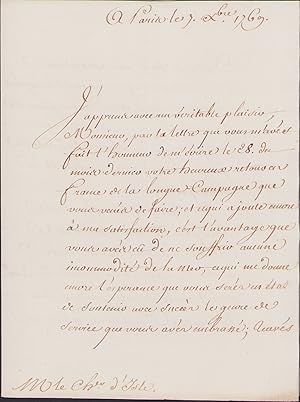 A Paris le 7. Xbre 1769.
J'apprens avec un véritable plaisir,
Monsieur, par la lettre que vous m'avés
fait l'honneur de m'écrire le 28. du
mois dernier votre heureux retour en
france de la longue Campagne que
vous venés de faire; et ce qui ajoute encore
à ma satisfaction, c'est l'avantage que
vous avés eü de ne souffrir aucune
incommodité de la Mer, ce qui me donne
encore l'espérance que vous serés en état
de soutenir avec succès le genre de
Service que vous avés embrassé; 
M. le Ch.er d'Isle.